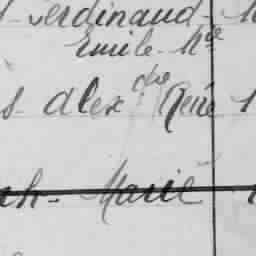 Ferdinand-
Emile-Mce
s- Alex dre René 1
ch- Marie